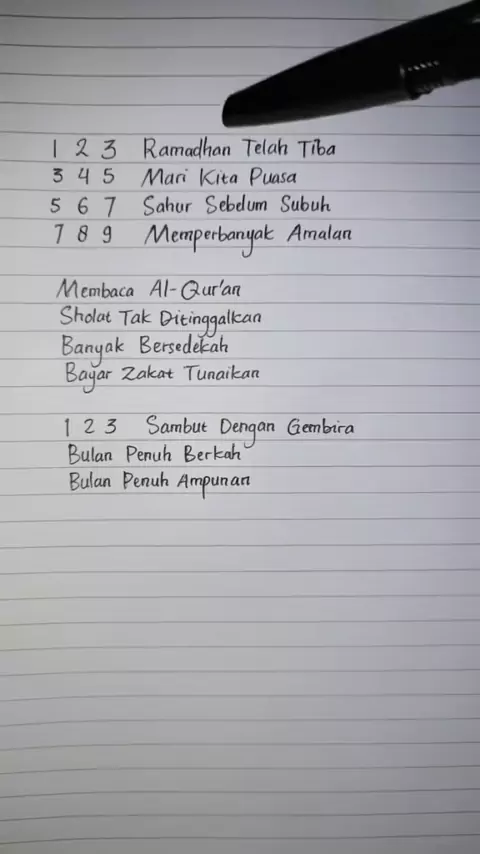 1 2 3 Ramadhan Telah Tiba
3 4 5 Mari Kita Puasa
5 6 7 Sahur Sebelum Subuh
7 8 9 Memperbanyak Amalan
Membaca Al-Qur'an
Sholat Tak Ditinggalkan
Banyak Bersedekah
Bayar Zakat Tunaikan
1 2 3 Sambut Dengan Gembira
Bulan Penuh Berkah
Bulan Penuh Ampunan